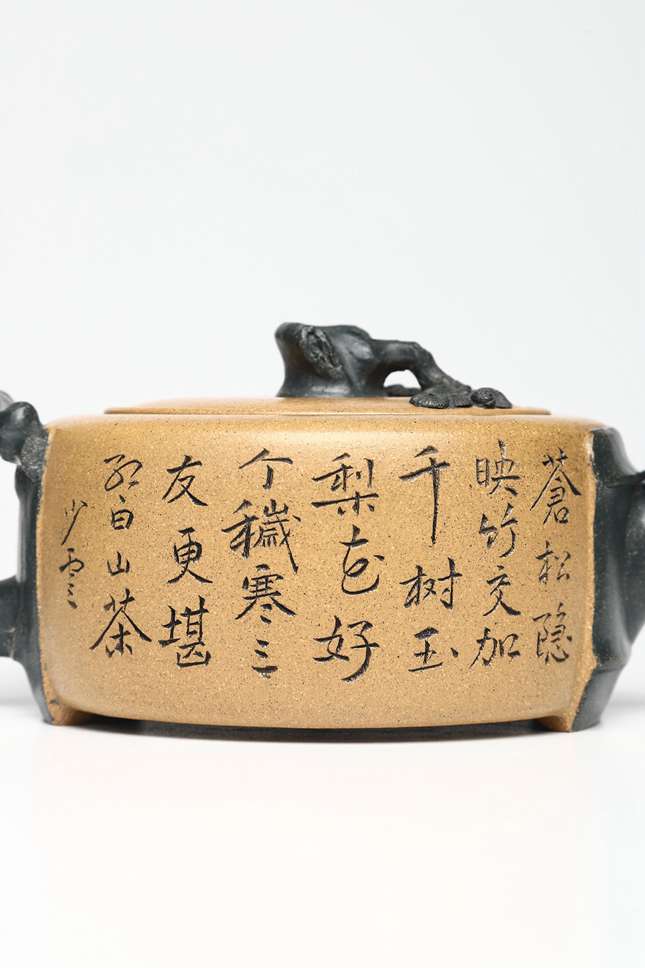 蒼松隐
映竹交加
千树玉
梨花好
个穢寒三
友更堪
红白山茶
少雲